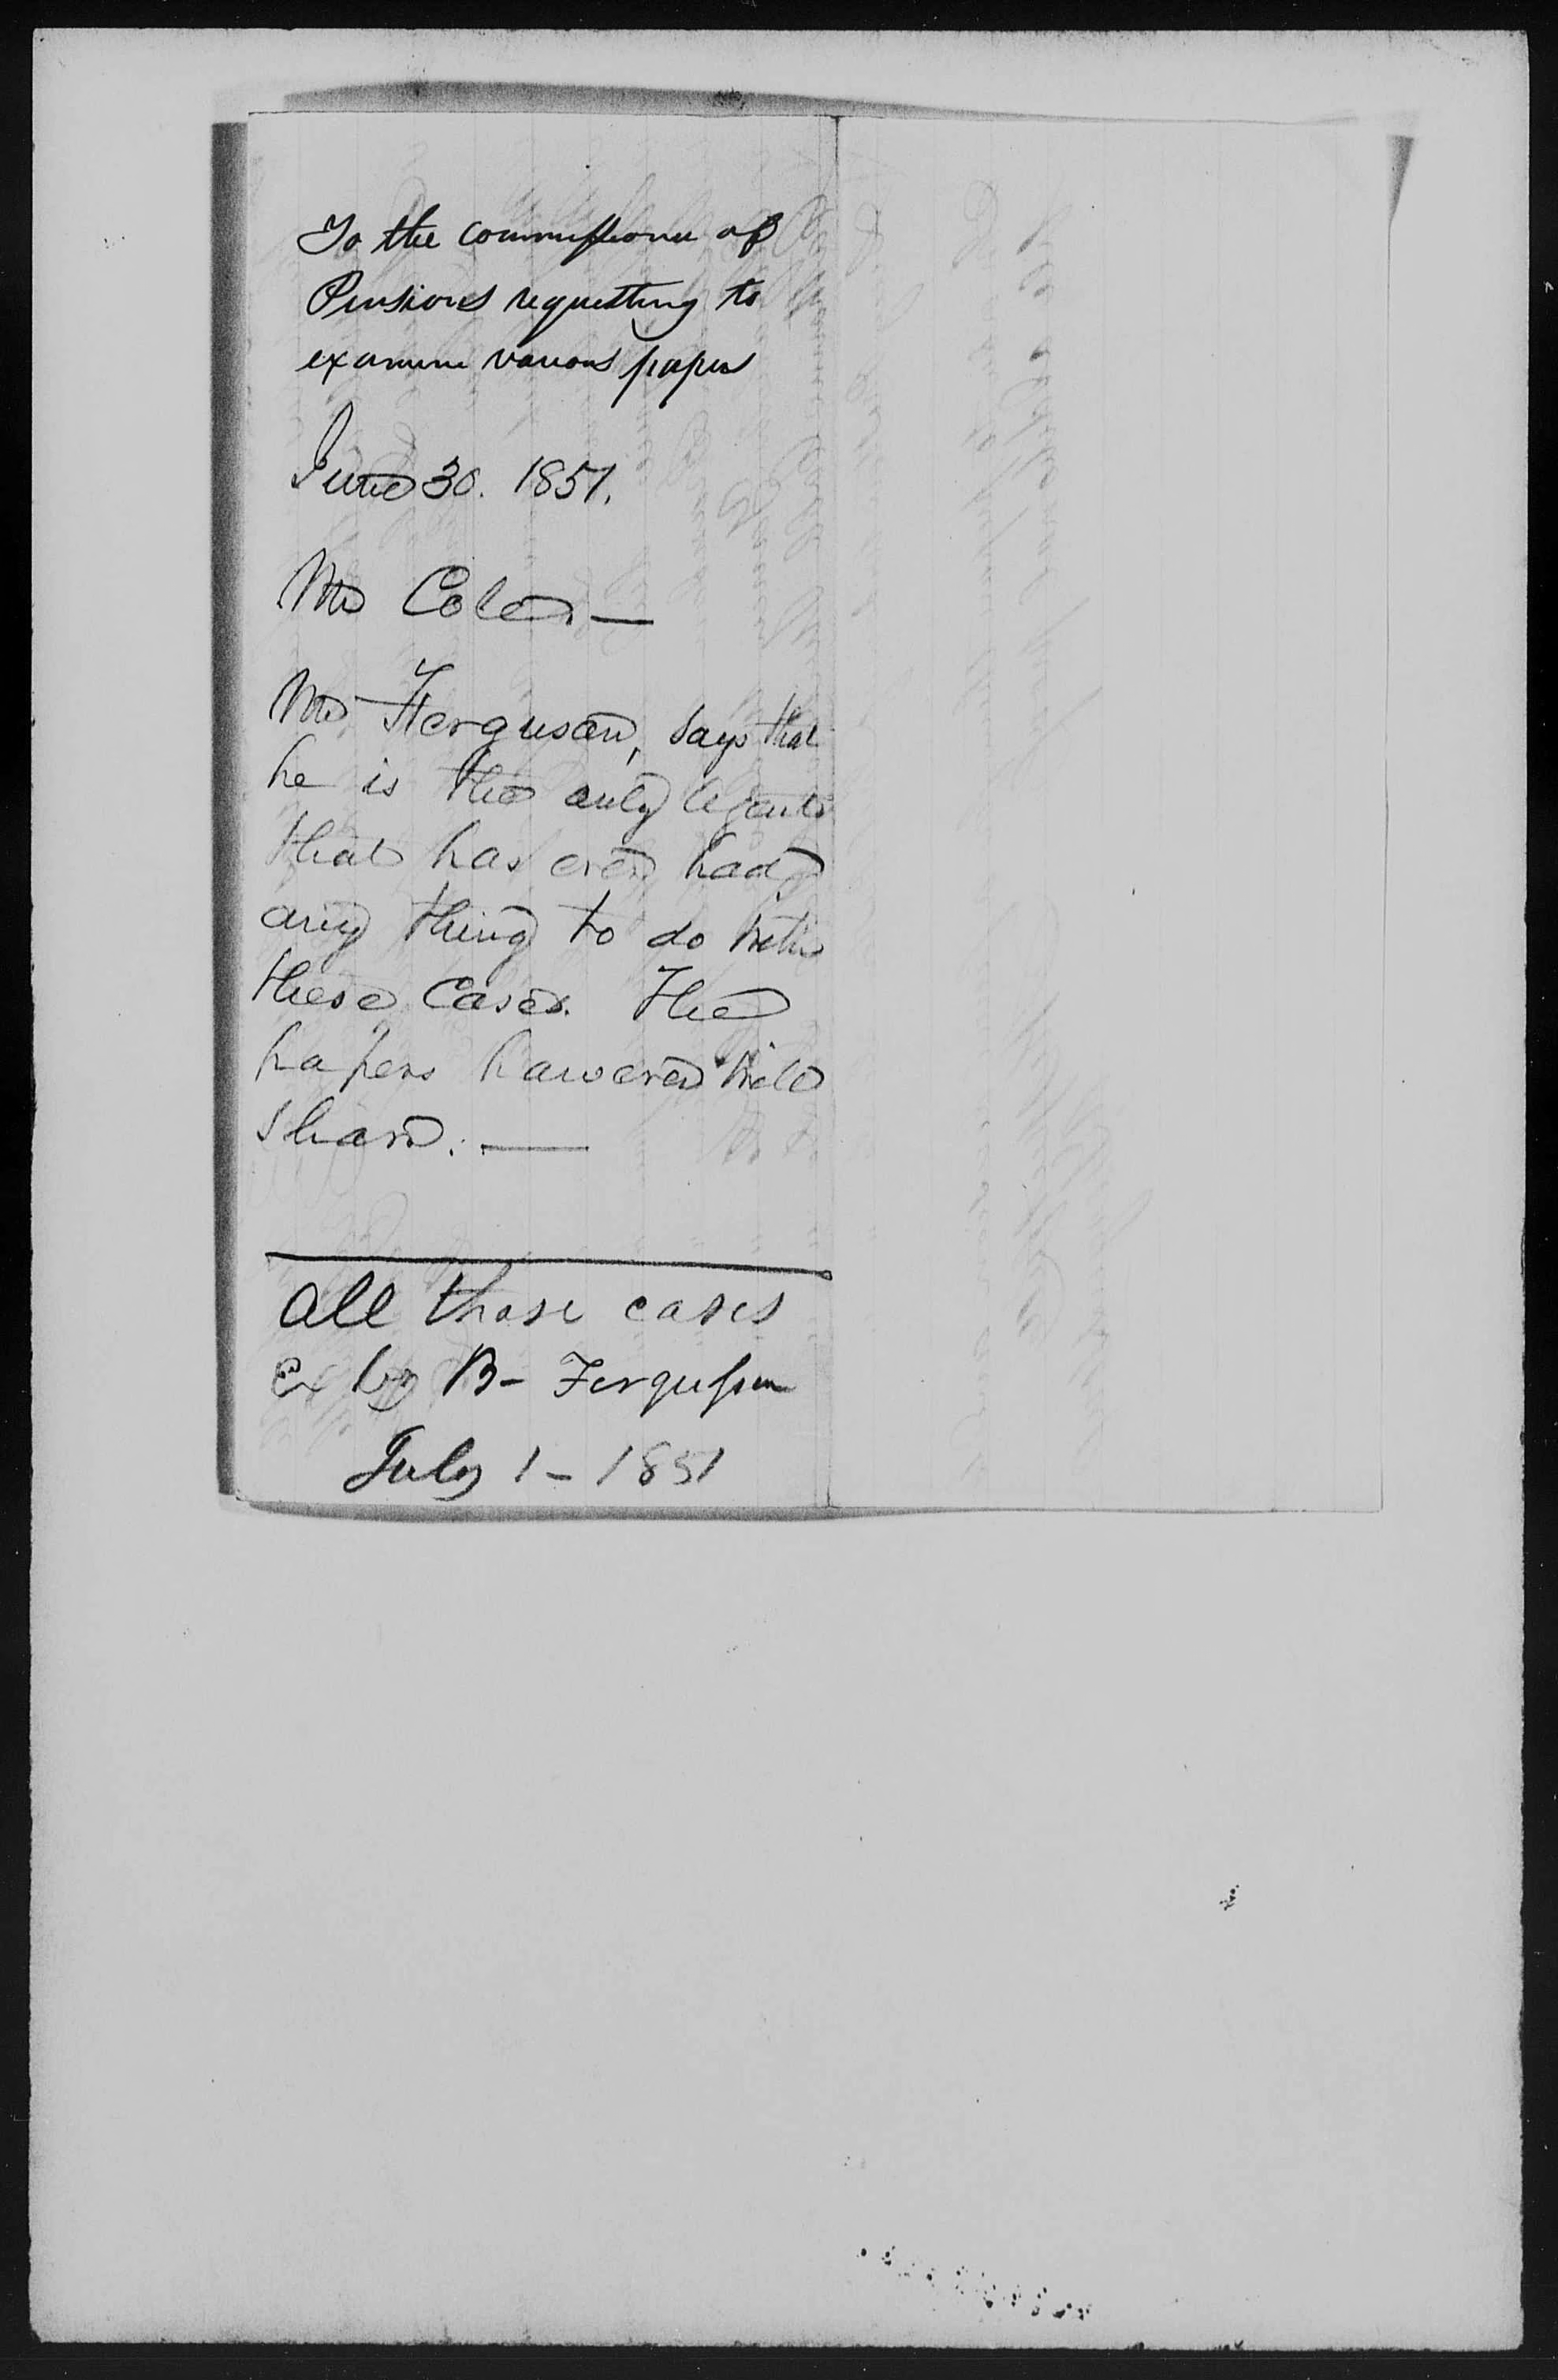 To the Commissioner of
Pensions requesting to
examine various papers
June 30. 1851.
Mr Cole.—
Mr Ferguson, says that
he is the only Agent
that has ever had
any thing to do with
these Cases. The
papers however will
show. —
All those cases
Ex by B- Fergusson
July 1 - 1851